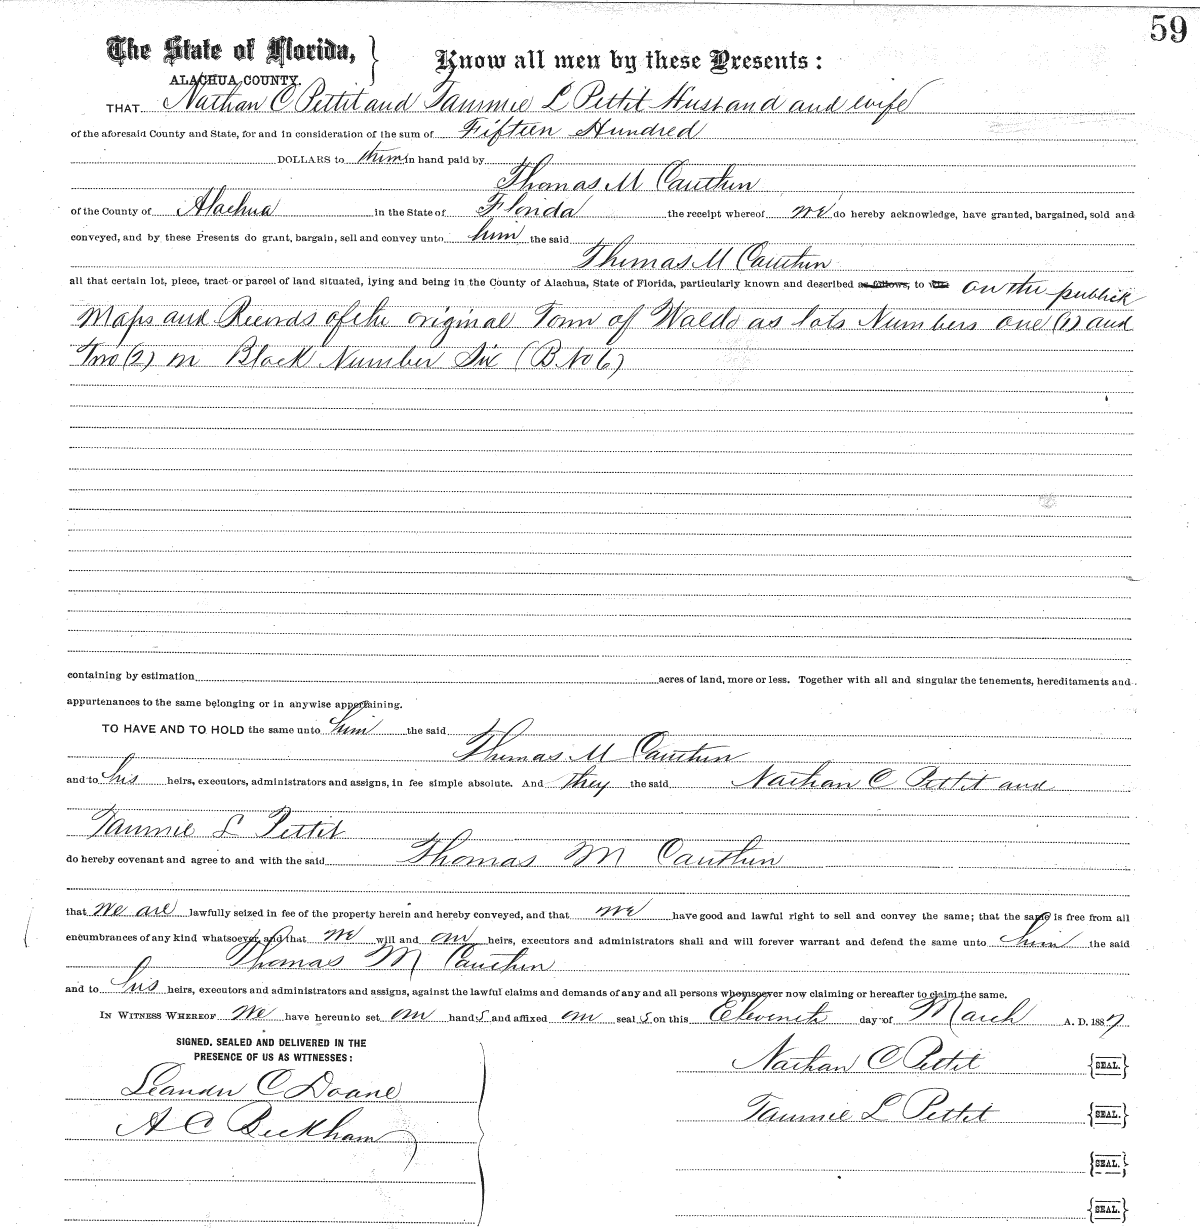 59
The State of Florida,
ALACHUA COUNTY.
Know all men by these Presents:
THAT Nathan C Pettit and Tammie L Pettit Husband and wife
of the aforesaid County and State, for and in consideration of the sum of Fifteen Hundred
DOLLARS to them in hand paid by
Thomas M Cauthen
of the County of Alachua in the State of Florida the receipt whereof we do hereby acknowledge, have granted, bargained, sold and
conveyed, and by these Presents do grant, bargain, sell and convey unto him the said
Thomas M Cauthen
all that certain lot, piece, tract or parcel of land situated, lying and being in the County of Alachua, State of Florida, particularly known and described as follows, to wit: on the publick
Maps and Records of the original Town of Waldo as lots Numbers one (1) and
Two (2) in Block Number Six (B No 6)
containing by estimation acres of land, more or less. Together with all and singular the tenements, hereditaments and
appurtenances to the same belonging or in anywise appertaining.
TO HAVE AND TO HOLD the same unto him the said
Thomas M Cauthen
and to his heirs, executors, administrators and assigns, in fee simple absolute. And they the said Nathan C Pettit and
Tammie L Pettit
do hereby covenant and agree to and with the said Thomas M Cauthen
that we are lawfully seized in fee of the property herein and hereby conveyed, and that we have good and lawful right to sell and convey the same; that the same is free from all
encumbrances of any kind whatsoever, and that we will and our heirs, executors and administrators shall and will forever warrant and defend the same unto him the said
Thomas M Cauthen
and to his heirs, executors and administrators and assigns, against the lawful claims and demands of any and all persons whomsoever now claiming or hereafter to claim the same.
IN WITNESS WHEREOF We have hereunto set our hands and affixed our seals on this Eleventh day of March A. D. 1887
SIGNED, SEALED AND DELIVERED IN THE
PRESENCE OF US AS WITNESSES:
Leander C Doane
A C Beckham
Nathan C Pettit SEAL.
Tammie L Pettit SEAL.
SEAL.
SEAL.